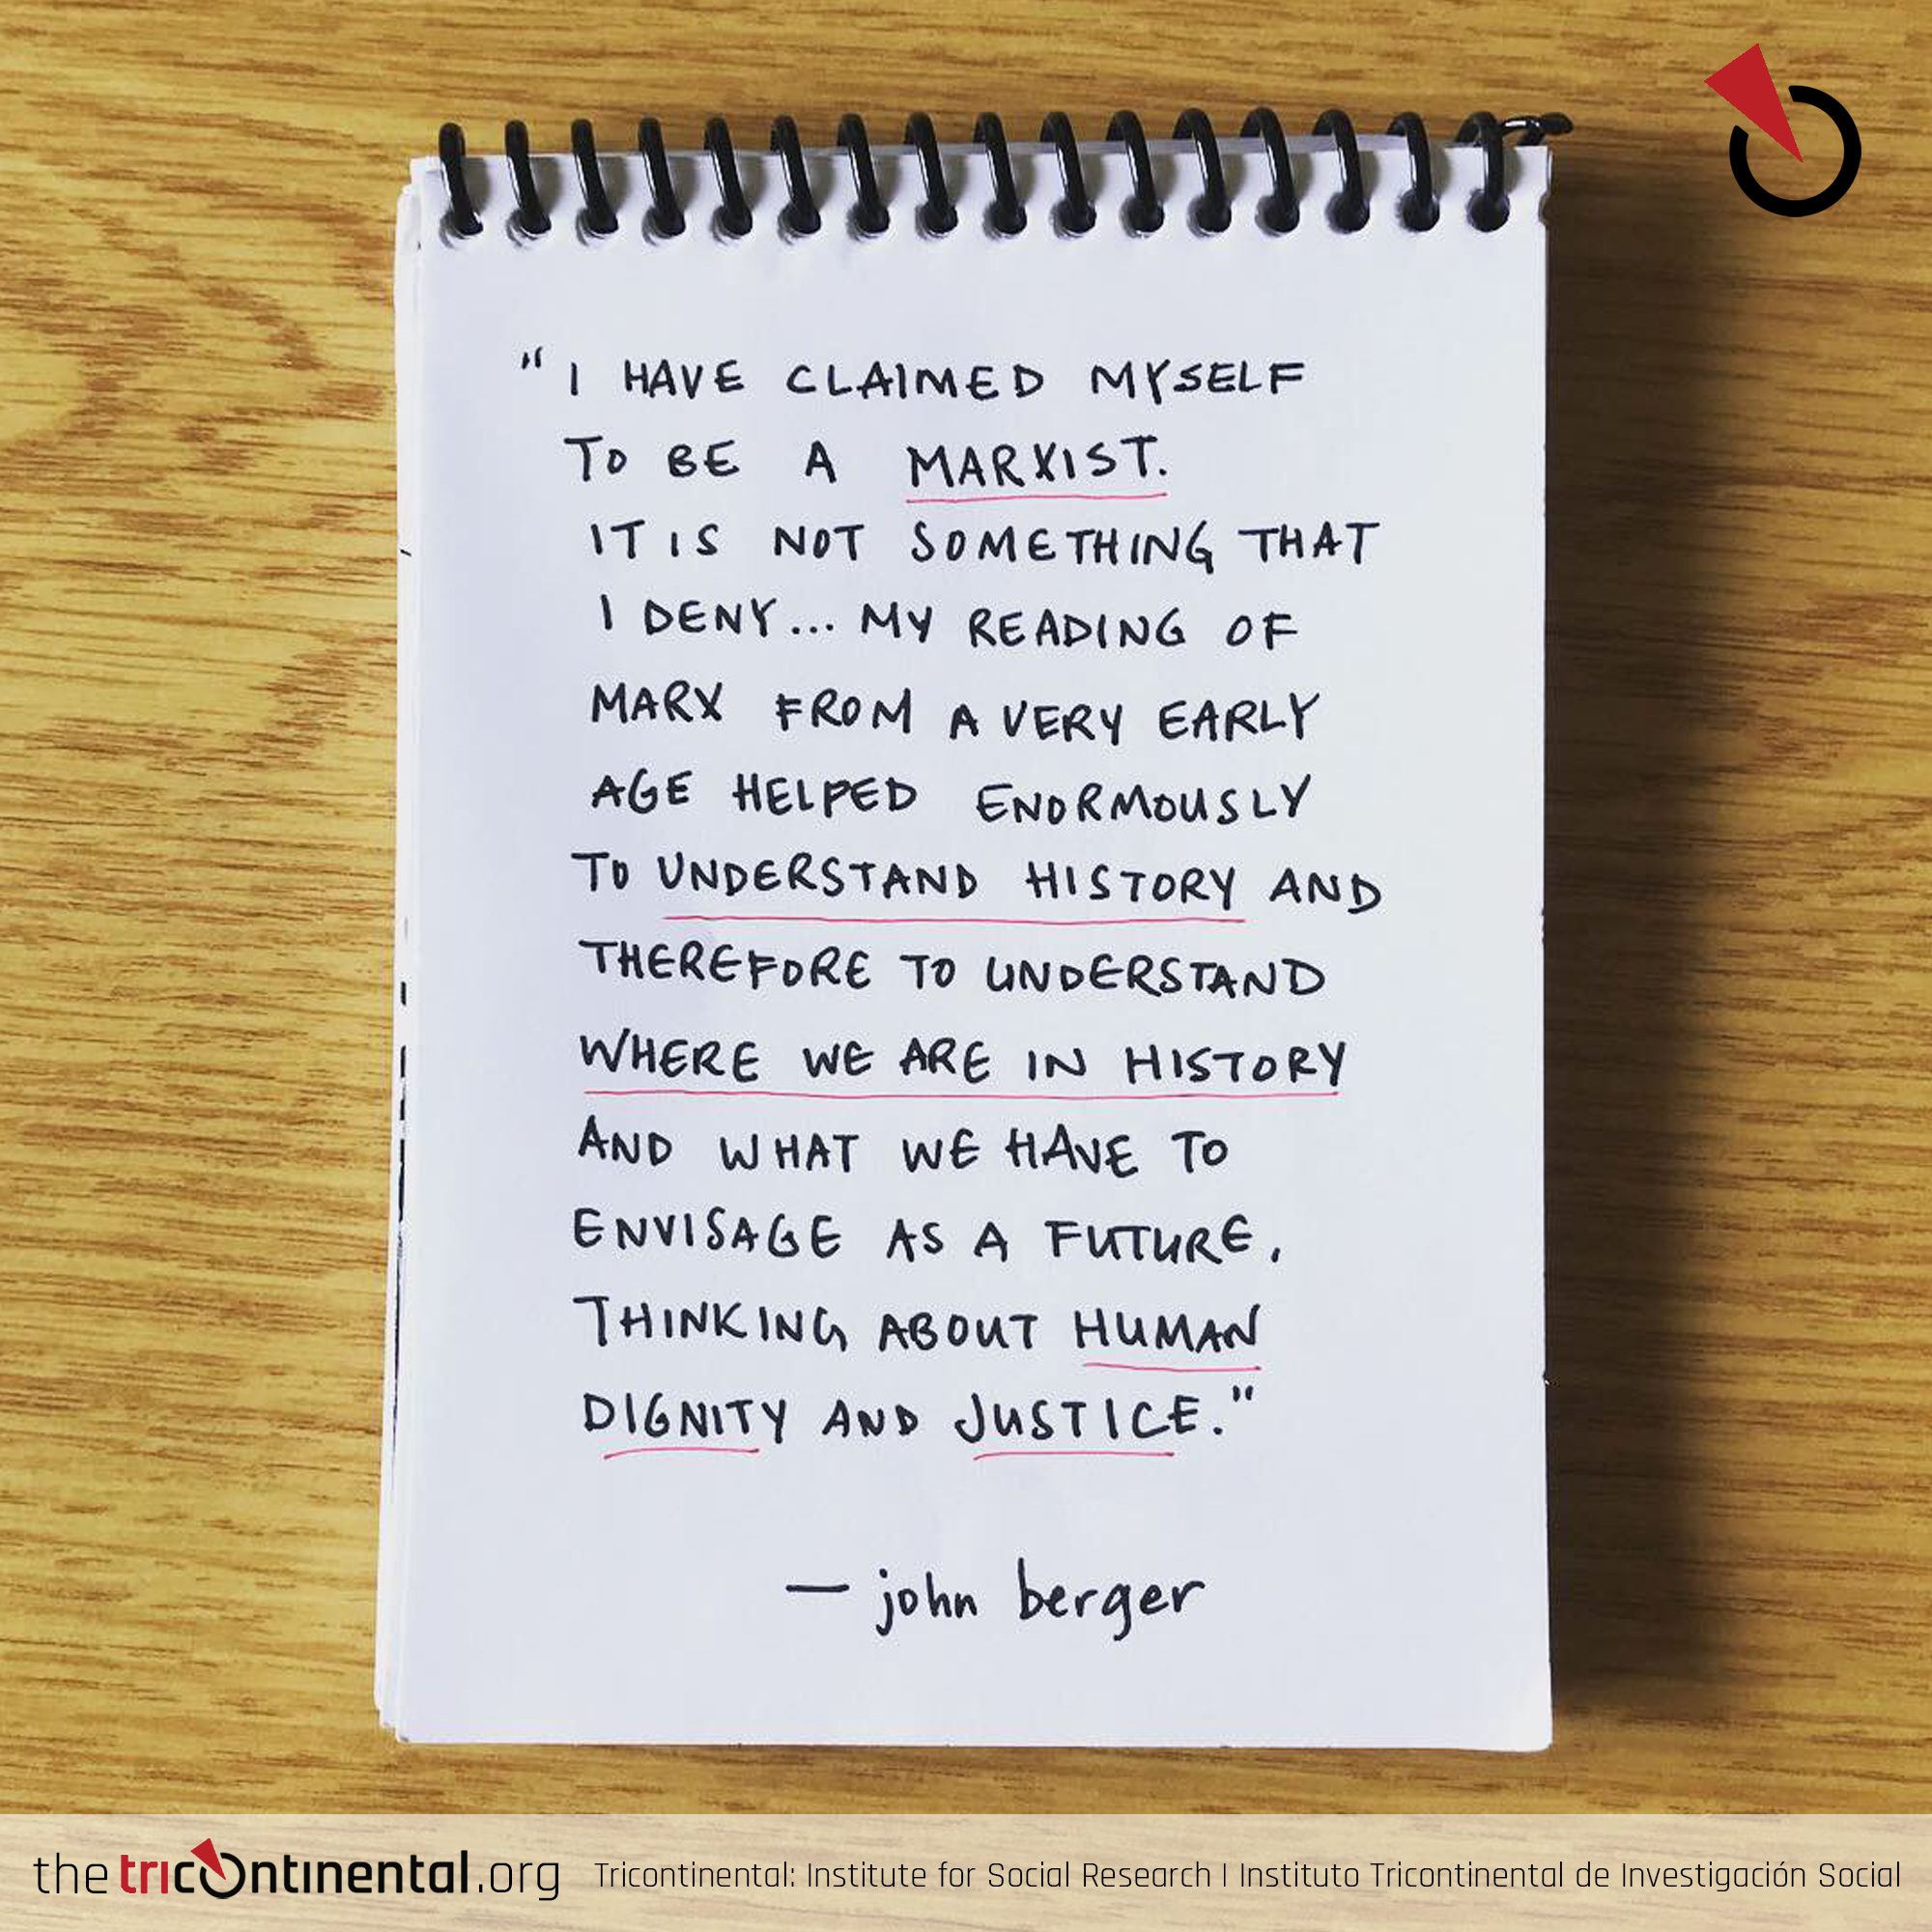 "I HAVE CLAIMED MYSELF
TO BE A MARXIST.
IT IS NOT SOMETHING THAT
I DENY... MY READING OF
MARX FROM A VERY EARLY
AGE HELPED ENORMOUSLY
TO UNDERSTAND HISTORY AND
THEREFORE TO UNDERSTAND
WHERE WE ARE IN HISTORY
AND WHAT WE HAVE TO
ENVISAGE AS A FUTURE,
THINKING ABOUT HUMAN
DIGNITY AND JUSTICE."
— john berger
thetricontinental.org
Tricontinental: Institute for Social Research | Instituto Tricontinental de Investigación Social